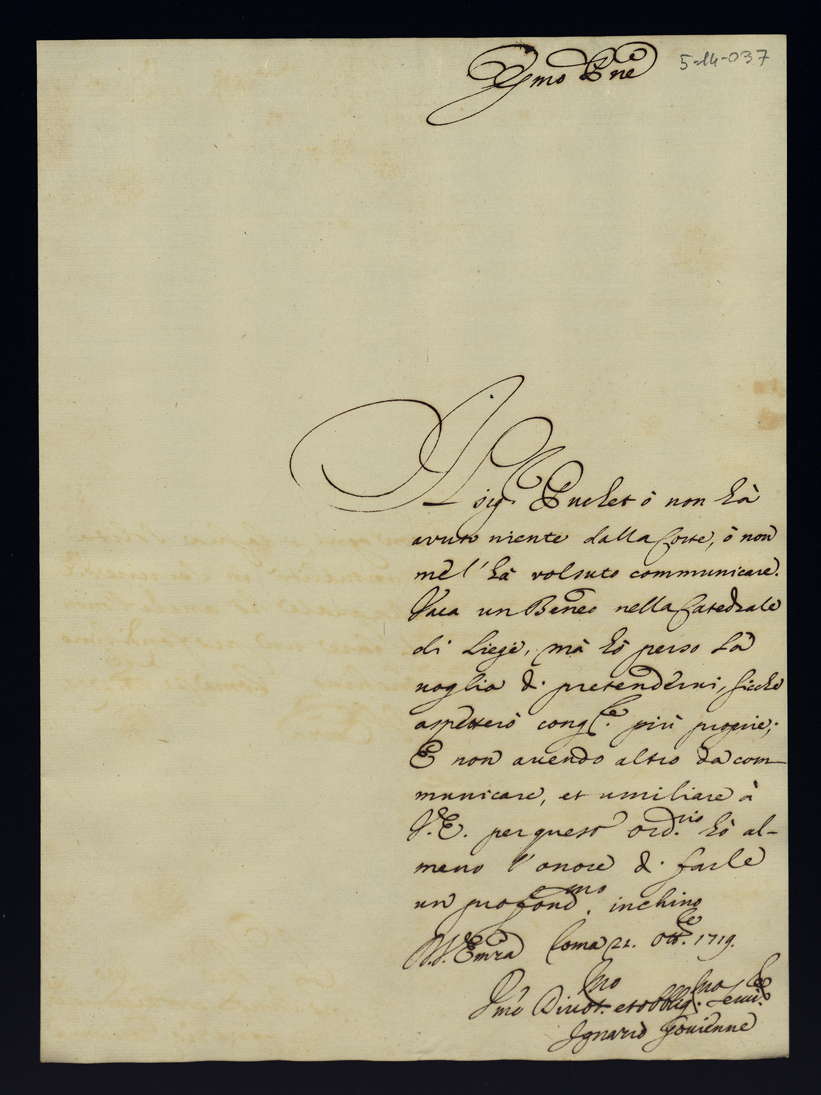 5-14-037
Emo Pne
Il sig.r Puchet ò non hà
avuto niente dalla Corte, ò non
mè l'hà volsuto communicare.
Vaca un Beneo nella Catedrale
di Liege, mà hò perso la
voglia di pretenderui, sicche
aspetterò cong.re più proprie;
E non auendo altro da com-
municare, et umiliare à
V.E. per questo ord.rio hò al-
meno l'onore di farle
un profond.mo inchino
D.V. Emza Roma 21. Ott.re 1719.
Vmo Diuot.mo et obblig.mo Seruire
Ignazio